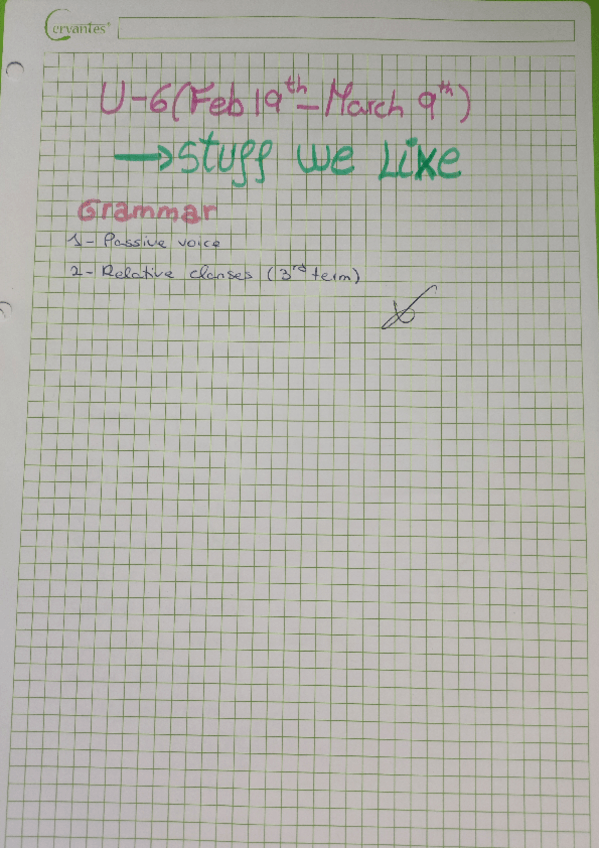 Cervantes
U-6 (Feb 19th - March 9th)
→ Stuff we Like
Grammar
1- Passive voice
2- Relative clauses (3rd term)